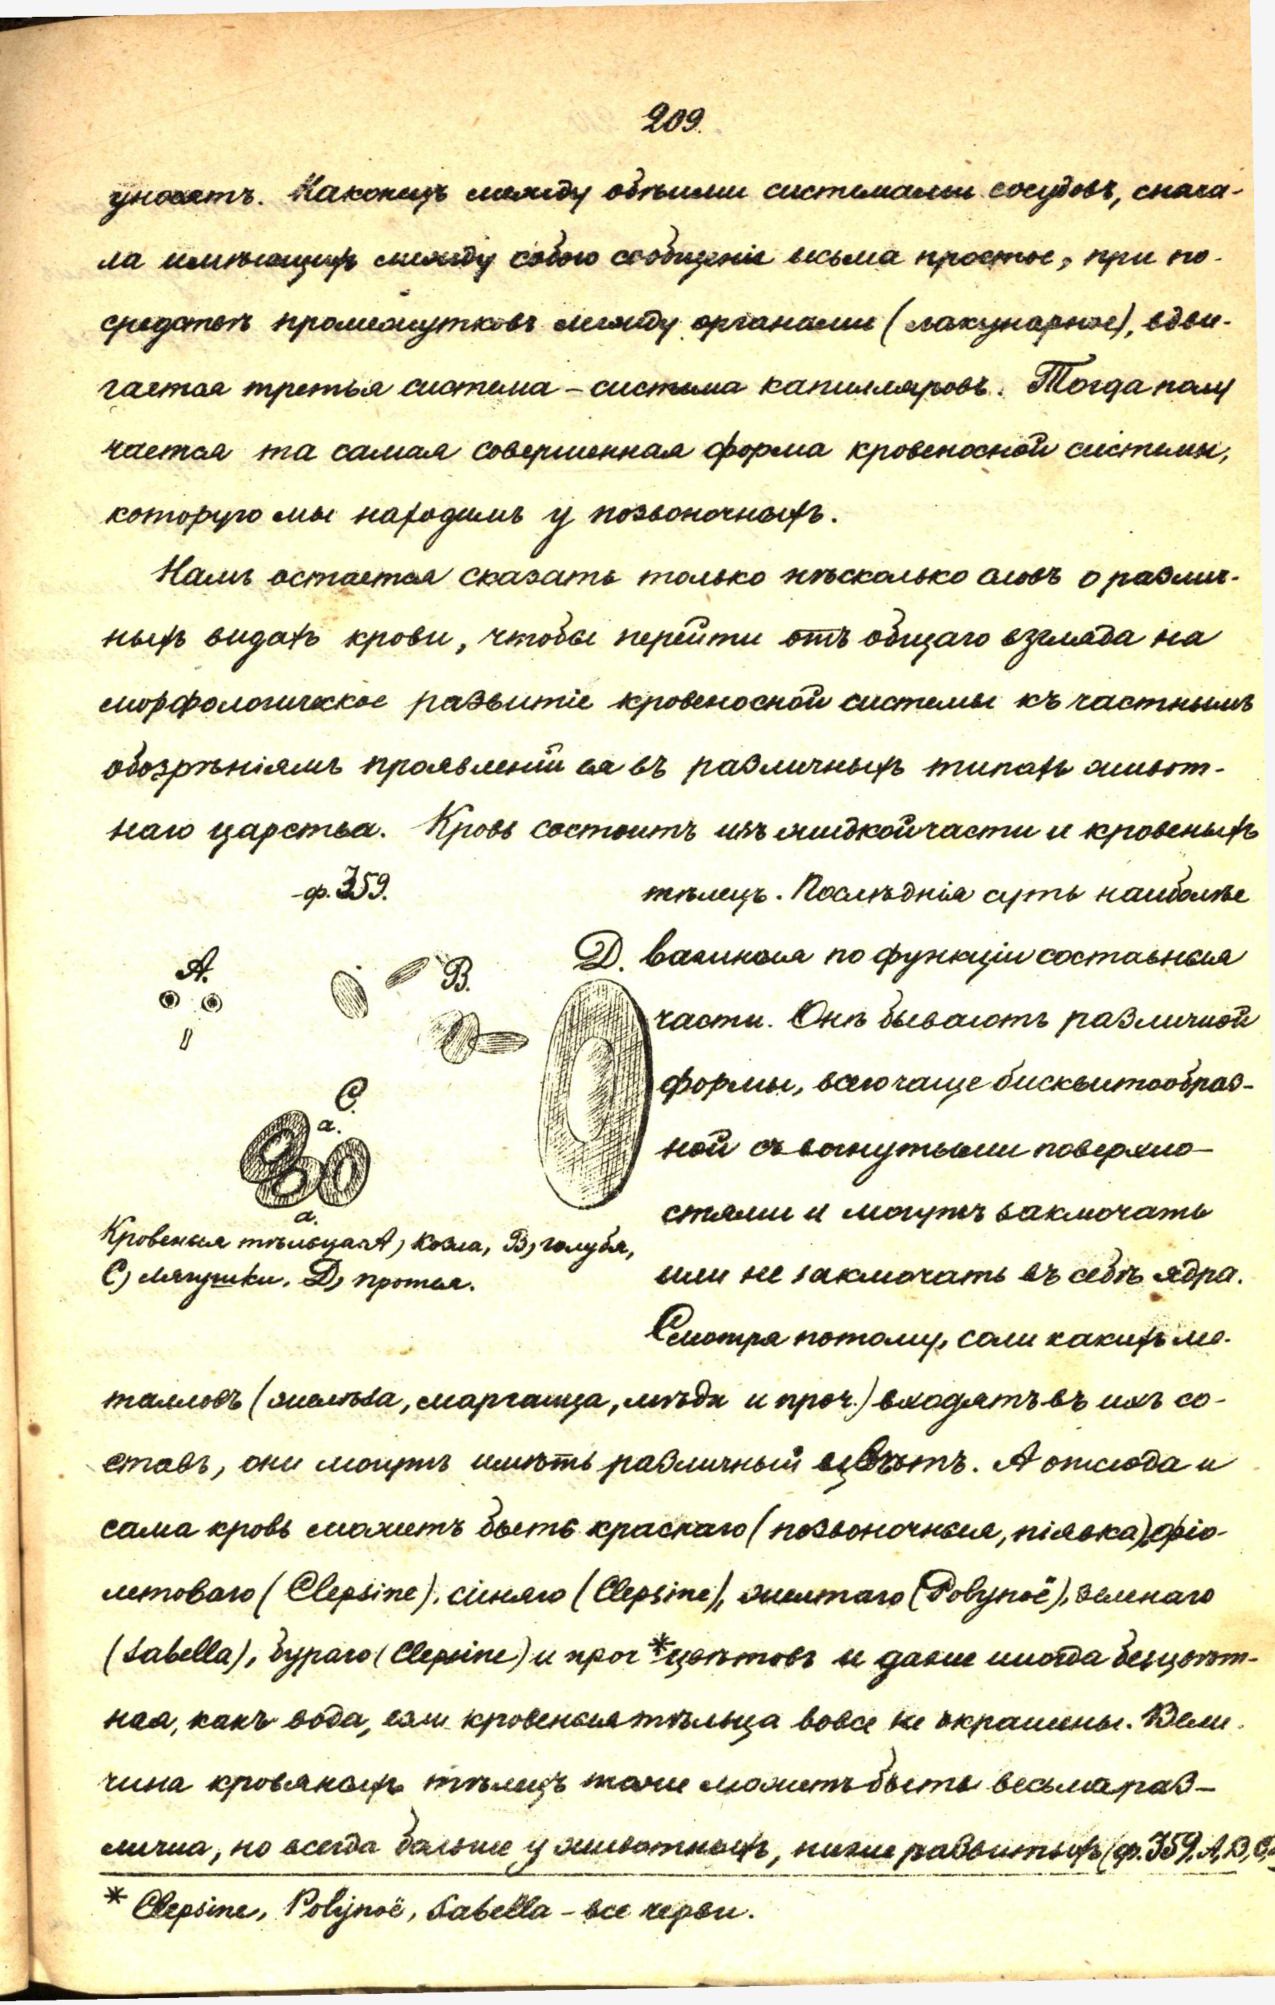 209.
уносятъ. Наконецъ между обѣими системами сосудовъ, снача-
ла имѣющихъ между собою сообщеніе весьма простое, при по-
средствѣ промежутковъ между органами (лакунарное), вдви-
гается третья система – система капилляровъ. Тогда полу
чается та самая совершенная форма кровеносной системы,
которую мы находимъ у позвоночныхъ.
Намъ остается сказать только нѣсколько словъ о различ-
ныхъ видахъ крови, чтобы перейти отъ общаго взгляда на
морфологическое развитіе кровеносной системы къ частнымъ
обозрѣніямъ проявленій ея въ различныхъ типахъ живот-
наго царства. Кровь состоитъ изъ жидкой части и кровеныхъ
ф. 359.
тѣлецъ. Послѣднія суть наиболѣе
важныя по функціи составныя
части. Онѣ бываютъ различной
формы, всего чаще бисквитообраз-
ной съ вогнутыми поверхно-
стями и могутъ заключать
или не заключать въ себѣ ядра.
Смотря потому, соли какихъ ме-
A.
B.
D.
C.
a.
a.
Кровеныя тѣльца: A) козла, B) голубя,
C) лягушки, D) протея.
талловъ (желѣза, марганца, мѣди и проч.) входятъ въ ихъ со-
ставъ, они могутъ имѣть различный цвѣтъ. А отсюда и
сама кровь можетъ быть краснаго (позвоночныя, піявка), фіо-
летоваго (Clepsine), синяго (Clepsine), желтаго (Polynoë), зеленаго
(Sabella), бураго (Clepsine) и проч * цвѣтовъ и даже иногда безцвѣт-
ная, какъ вода, если кровеныя тѣльца вовсе не окрашены. Вели-
чина кровяныхъ тѣлецъ тоже можетъ быть весьма раз-
лична, но всегда больше у животныхъ, ниже развитыхъ (ф. 359. A, B, C,
* Clepsine, Polynoë, Sabella – все черви.